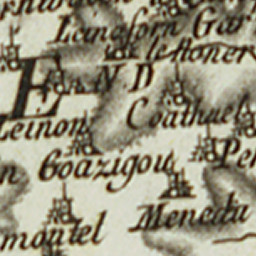 Leingforn Gar
le stoner
E N D
Leinon Coathuel
n Goazigou Pen
Menedu
moutel